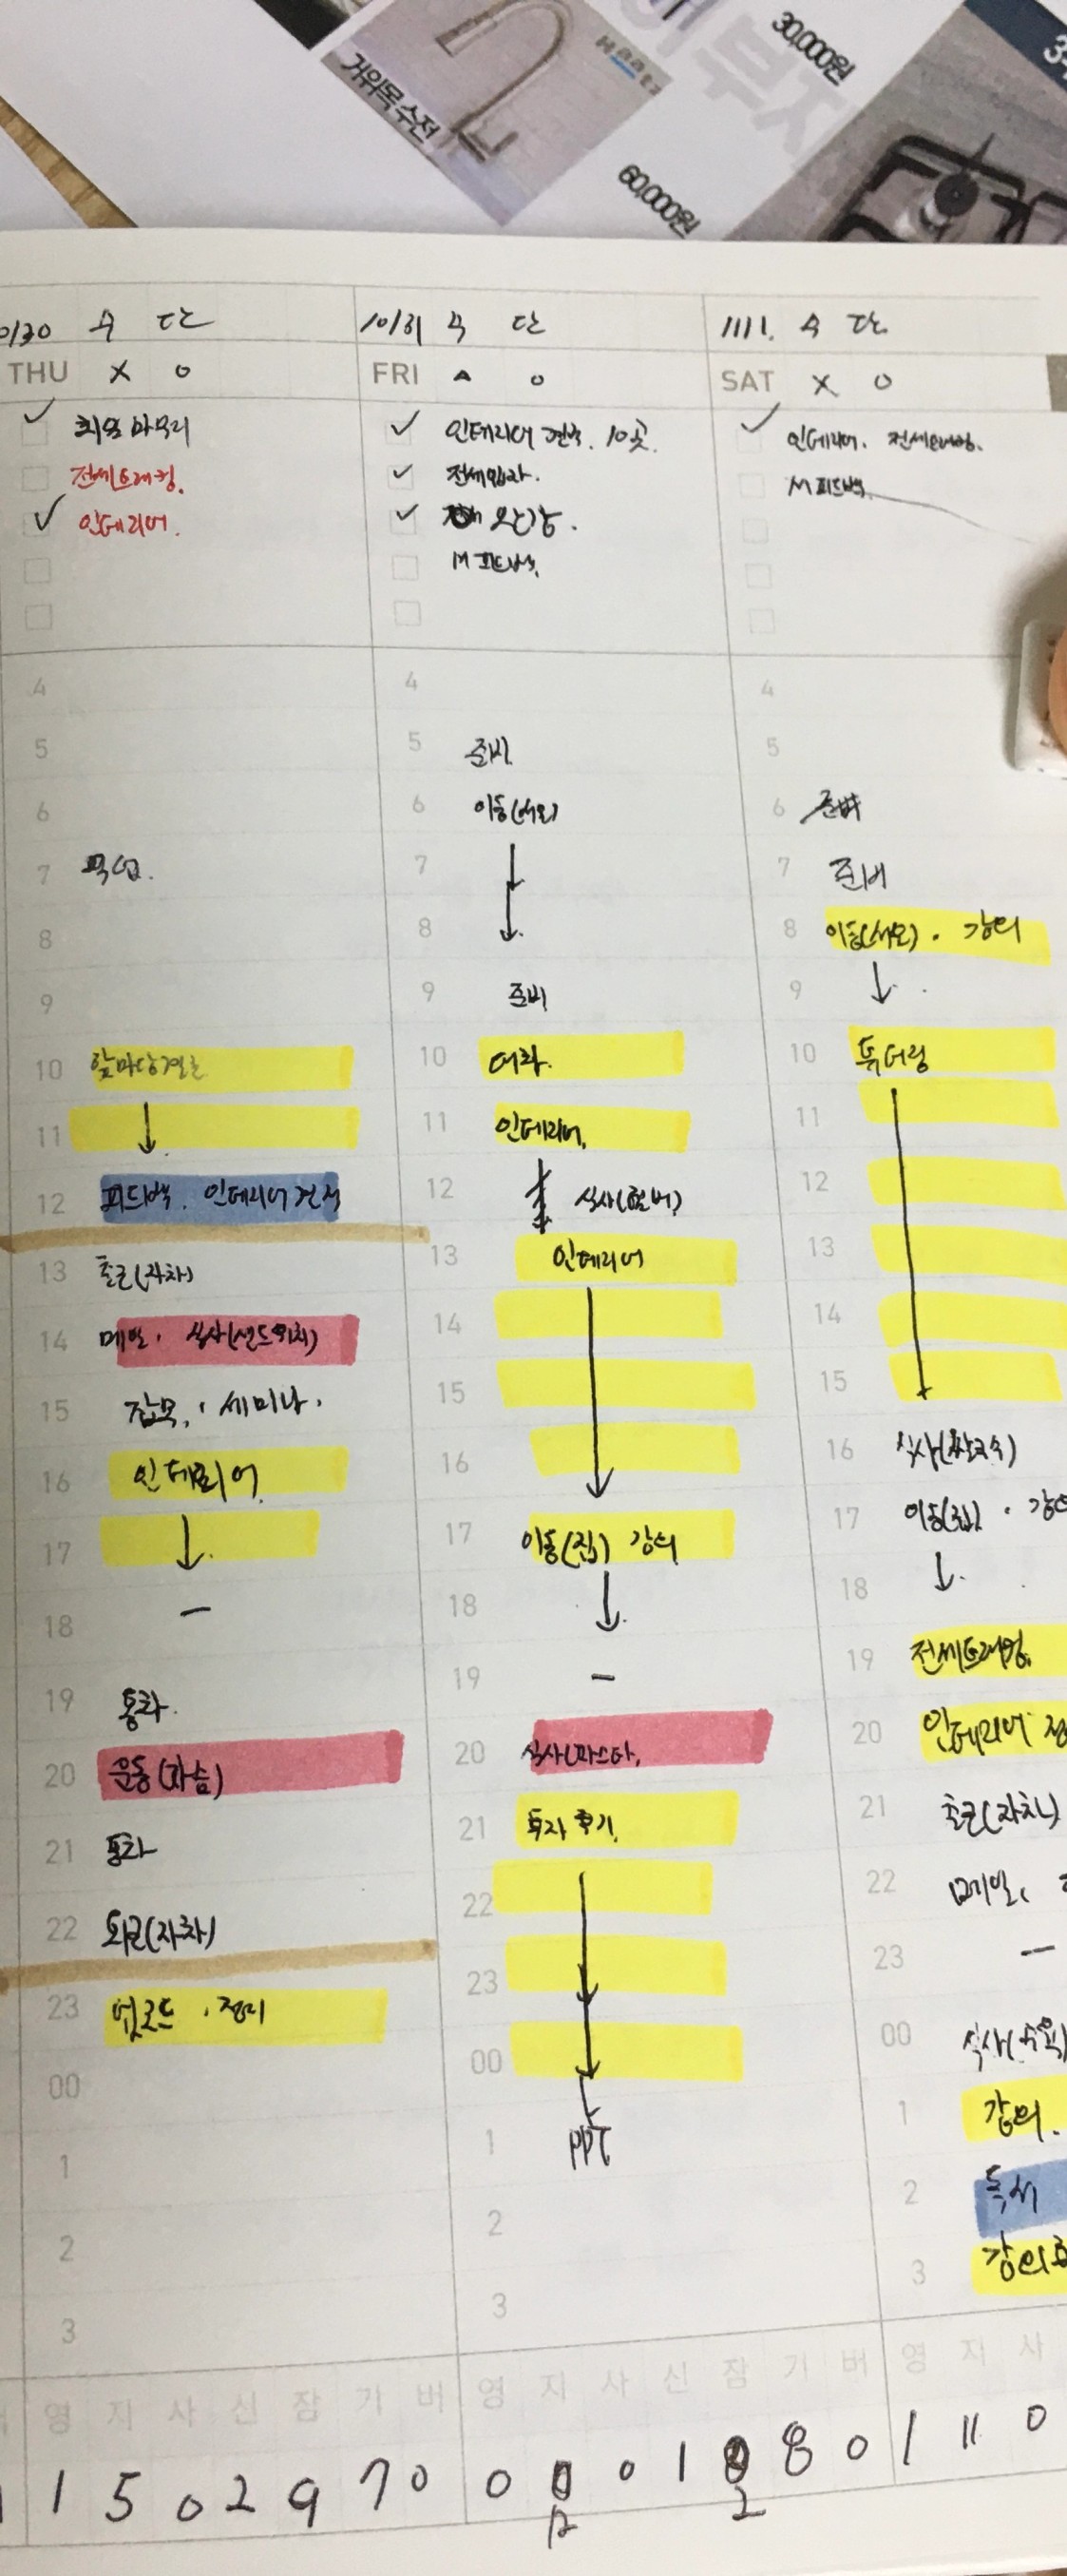 거위목 수전
Haatz
30,000원
60,000원
10/30 수 단
THU X O
최임 마무리
전세트래킹.
인테리어.
7 목실.
10 앞마당결론
11 ↓
12 피드백. 인테리어 견적
13 출근(자차)
14 메일. 식사(샌드위치)
15 잡무, 세미나.
16 인테리어
17 ↓
18 —
19 통화.
20 운동(가슴)
21 통화
22 퇴근(자차)
23 정리
00
1
2
3
영 지 사 신 잠 기 버
1 5 0 2 9 7 0
10/31 수 단
FRI △ O
인테리어 견적. 10곳.
전세입자.
M 피드백.
4
5 준비
6 이동(서울)
7 ↓
8 ↓
9 준비
10
11 인테리어.
12 식사(햄버)
13 인테리어
14
15
16
17 이동(집) 강의
18 ↓
19 —
20 식사(파스타,
21 투자 후기.
22
23
00
1 PPT
2
3
영 지 사 신 잠 기 버
0 12 0 1 2 8 0
11/1. 수 단
SAT X O
인테리어. 전세트래킹.
M 피드백
4
5
6 준비
7 준비
8 이동(서울). 강의
9 ↓
10 튜터링
11
12
13
14
15
16 식사(쌀국수)
17 이동(집).
18 ↓
19 전세트래킹.
20 인테리어
21 출근(자차)
22 메일,
23 —
00 식사(수육)
1 강의.
2 독서
3 강의
영 지 사
1 11 0